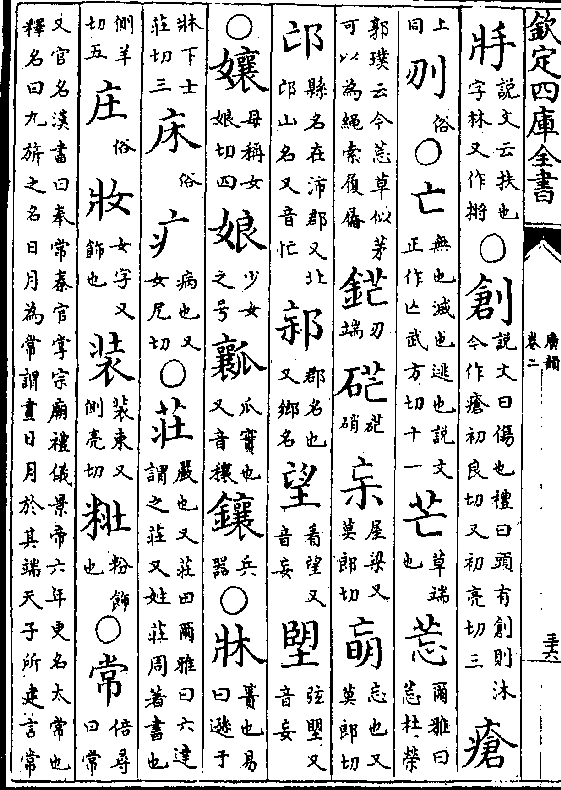 欽定四庫全書
廣韻
卷二
三六
牂說文云扶也字林又作㨄○創說文曰傷也禮曰頭有創則沐今作瘡初良切又初亮切三瘡
上同刅俗○亡無也滅也逃也說文正作亾武方切十一芒草端也䒽爾雅曰䒽杜榮
郭璞云今䒽草似茅可以為繩索履屩鋩刃端硭硭硝㝑屋梁又莫郎切朚忘也又莫郎切
邙縣名在沛郡又北邙山名又音忙郭郡名也又鄉名望看望又音妄朢弦朢又音妄
○孃母稱女娘切四娘少女之号瓤瓜實也又音穰鑲兵器○牀簀也易曰巽于
牀下士莊切三床俗疒病也又女戹切○莊嚴也又莊田爾雅曰六達謂之莊又姓莊周著書也
側羊切五庄俗妝女字又飾也裝裝束又側亮切粧粉飾也○常倍尋曰常
又官名漢書曰奉常秦官掌宗廟禮儀景帝六年更名太常也釋名曰九旂之名日月為常謂畫日月於其端天子所建言常